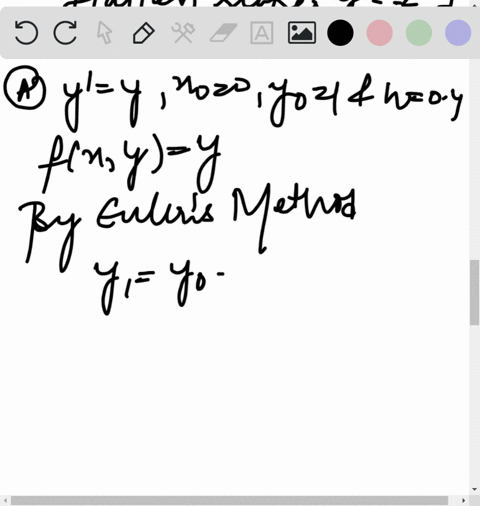 (A) y' = y, x0=0, y0=1 & h=0.4
f(x, y) = y
By Euler's Method
y1 = y0 -